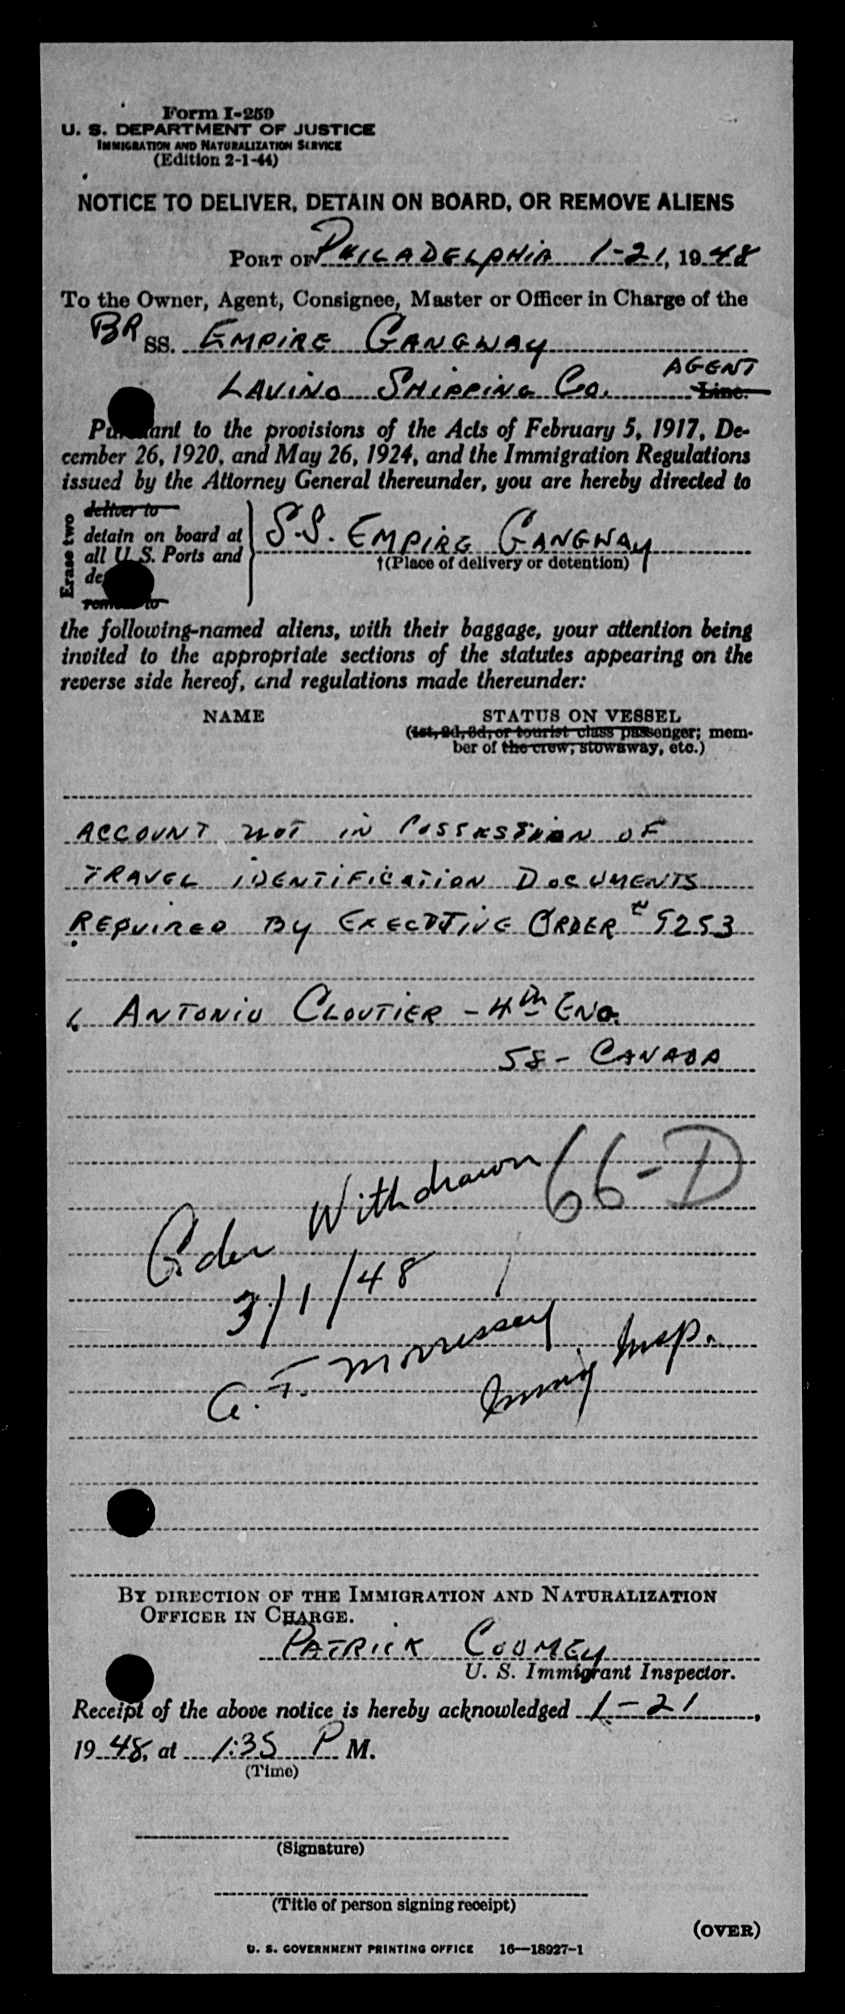 Form I-259
U. S. DEPARTMENT OF JUSTICE
IMMIGRATION AND NATURALIZATION SERVICE
(Edition 2-1-44)
NOTICE TO DELIVER, DETAIN ON BOARD, OR REMOVE ALIENS
PORT OF PHILADELPHIA 1-21, 1948
To the Owner, Agent, Consignee, Master or Officer in Charge of the
BR SS. EMPIRE GANGWAY
LAVINO SHIPPING CO. AGENT Line.
Pursuant to the provisions of the Acts of February 5, 1917, De-
cember 26, 1920, and May 26, 1924, and the Immigration Regulations
issued by the Attorney General thereunder, you are hereby directed to
Erase two
deliver to
detain on board at
all U. S. Ports and
remove to
S.S. EMPIRE GANGWAY
†(Place of delivery or detention)
the following-named aliens, with their baggage, your attention being
invited to the appropriate sections of the statutes appearing on the
reverse side hereof, and regulations made thereunder:
NAME STATUS ON VESSEL
(1st, 2d, 3d, or tourist class passenger; mem-
ber of the crew; stowaway, etc.)
ACCOUNT NOT IN POSSESSION OF
TRAVEL IDENTIFICATION DOCUMENTS
REQUIRED BY EXECUTIVE ORDER # 9253
ANTONIO CLOUTIER - 4th ENG.
58 - CANADA
66-D
Order Withdrawn
3/1/48
A. F. Morrissey
Immig Insp.
BY DIRECTION OF THE IMMIGRATION AND NATURALIZATION
OFFICER IN CHARGE.
PATRICK COOMEY
U. S. Immigrant Inspector.
Receipt of the above notice is hereby acknowledged 1-21,
1948, at 1:35 P M.
(Time)
(Signature)
(Title of person signing receipt)
(OVER)
U. S. GOVERNMENT PRINTING OFFICE 16—18927-1